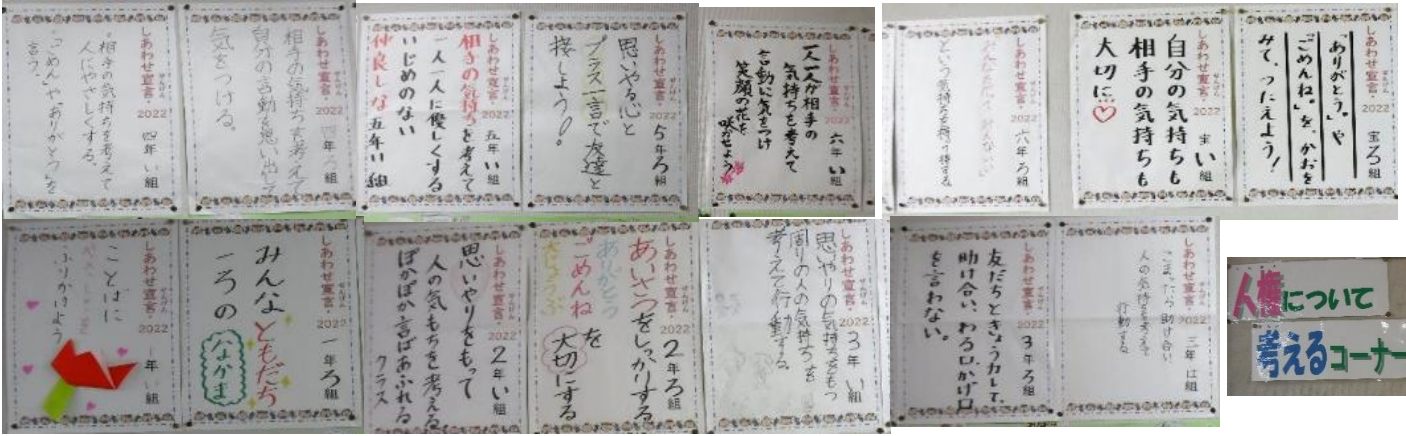 しあわせ宣言・2022
せんげん
四年 い組
・相手の気持ちを考えて
人にやさしくする。
・「ごめんや、ありがとう」を
言う。
しあわせ宣言・2022
せんげん
四年 ろ組
相手の気持ちを考えて
自分の言動を思い出して
気をつける。
しあわせ宣言・2022
せんげん
五年 い組
相手の気持ちを考えて
一人一人に優しくする
いじめのない
仲良しな五年い組
しあわせ宣言・2022
せんげん
5年ろ組
思いやる心と
プラス一言で友達と
接しよう!
しあわせ宣言・2022
せんげん
六年 い組
一人一人が相手の
気持ちを考えて
言動に気をつけ
笑顔の花を
咲かせよう
しあわせ宣言・2022
せんげん
六年 ろ組
という気持ちを
しあわせ宣言・2022
せんげん
宝 い組
自分の気持ちも
相手の気持ちも
大切に♡
しあわせ宣言・2022
せんげん
宝 ろ組
「ありがとう。」や
「ごめんね。」を、かおを
みて、つたえよう!
しあわせ宣言・2022
せんげん
一年 い組
ことばに
ふりかけよう
しあわせ宣言・2022
せんげん
一年ろ組
みんなともだち
一ろの
なかま
しあわせ宣言・2022
せんげん
2年 い組
思いやりをもって
人の気もちを考える
ぽかぽか言ばあふれる
クラス
しあわせ宣言・2022
せんげん
2年ろ組
あいさつをしっかりする
ありがとう
ごめんね を
大じょうぶ
大切にする
しあわせ宣言・2022
せんげん
3年 い組
思いやりの気持ちをもつ
周りの人の気持ちを
考えて行動する
しあわせ宣言・2022
せんげん
3年ろ組
友だちときょう力して、
助け合い、わる口、かげ口
を言わない。
しあわせ宣言・2022
せんげん
三年 は組
こまったら助け合い、
人の気持ちを考えて
行動する
人権について
考えるコーナー